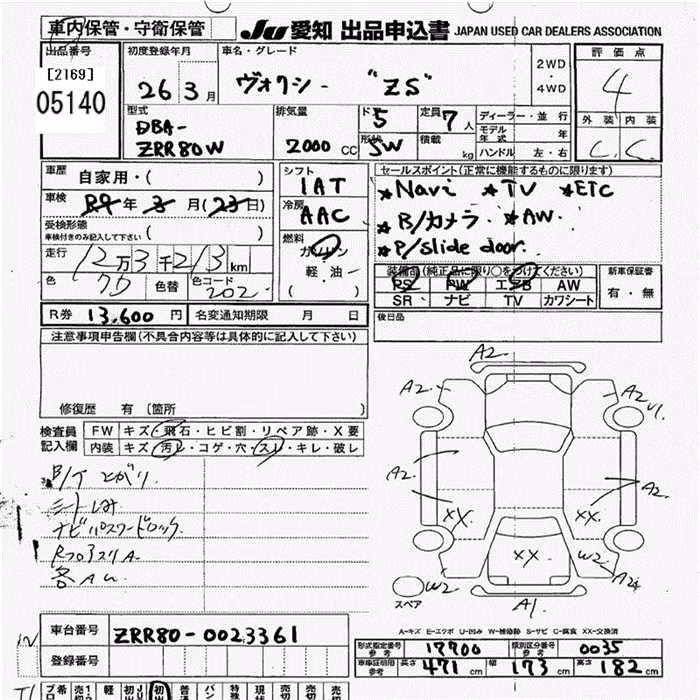 車内保管・守衛保管
Ju 愛知 出品申込書 JAPAN USED CAR DEALERS ASSOCIATION
出品番号
[2169]
05140
初度登録年月
26 3月
車名・グレード
ヴォクシー "ZS"
2WD
4WD
評価点
4
外装 内装
C C
型式
DBA-
ZRR80W
排気量
2000 CC
ド 5
形状 5W
定員 7人
積載 kg
ディーラー・並行
モデル年式 年
ハンドル 左・右
車歴 自家用・( )
車検 R9年3月(23日)
受検形態
車検付きのみ記入して下さい ( )
走行 12万3千213km
色 色替 色コード 202
シフト
IAT
冷房
AAC
燃料
ガソリン
軽油
( ・ )
セールスポイント(正常に機能するものに限ります)
★Navi ★TV ★ETC
★B/カメラ ★AW.
★P/slide door.
装備品(純正品に限り○をつけてください)
PS PW エアB AW
SR ナビ TV カワシート
新車保証書
有・無
後日品
R券 13,600円 名変通知期限 月 日
注意事項申告欄(不具合内容等は具体的に記入して下さい)
修復歴 有 〔箇所
検査員記入欄
FW キズ・飛石・ヒビ割・リペア跡・X要
内装 キズ・汚レ・コゲ・穴・スレ・キレ・破レ
ナビパスワードロック
RフロアスリA
A2
A2
A2
U1
A2
A2
XX
XX
XX
W2
W2
A1
スペア
A-キズ E-エクボ U-凹み W-補修跡 S-サビ C-腐食 XX-交換済
車台番号 ZRR80-0023361
登録番号
形式指定番号 参考 17700 類別区分番号 参考 0035
車庫証明用 参考 長さ 471cm 幅 173cm 高さ 182cm